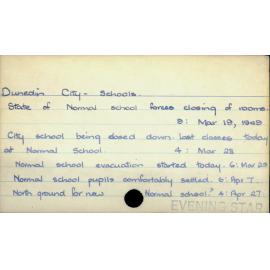 Dunedin City - Schools.
State of Normal school forces closing of rooms.
9: Mar 19, 1949
City school being closed down. last classes today
at Normal School. 4: Mar 28
Normal school evacuation started today. 6: Mar 29
Normal school pupils comfortably settled. 6: Apr 7.
North ground for new Normal school? 4: Apr 27.
EVENING STAR